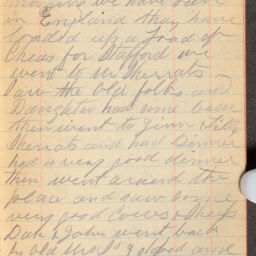 morning we have been
in England they have
loaded up a load of
Cheas for Stafford we
went to Mr Sherrats
saw the old folks and
Daughter had some bear
then went to Jinn
Sherrats and had Dinner
had a very good dinner
then went around the
place and saw some
very good cows & sheep
Dan & John went back
to old and